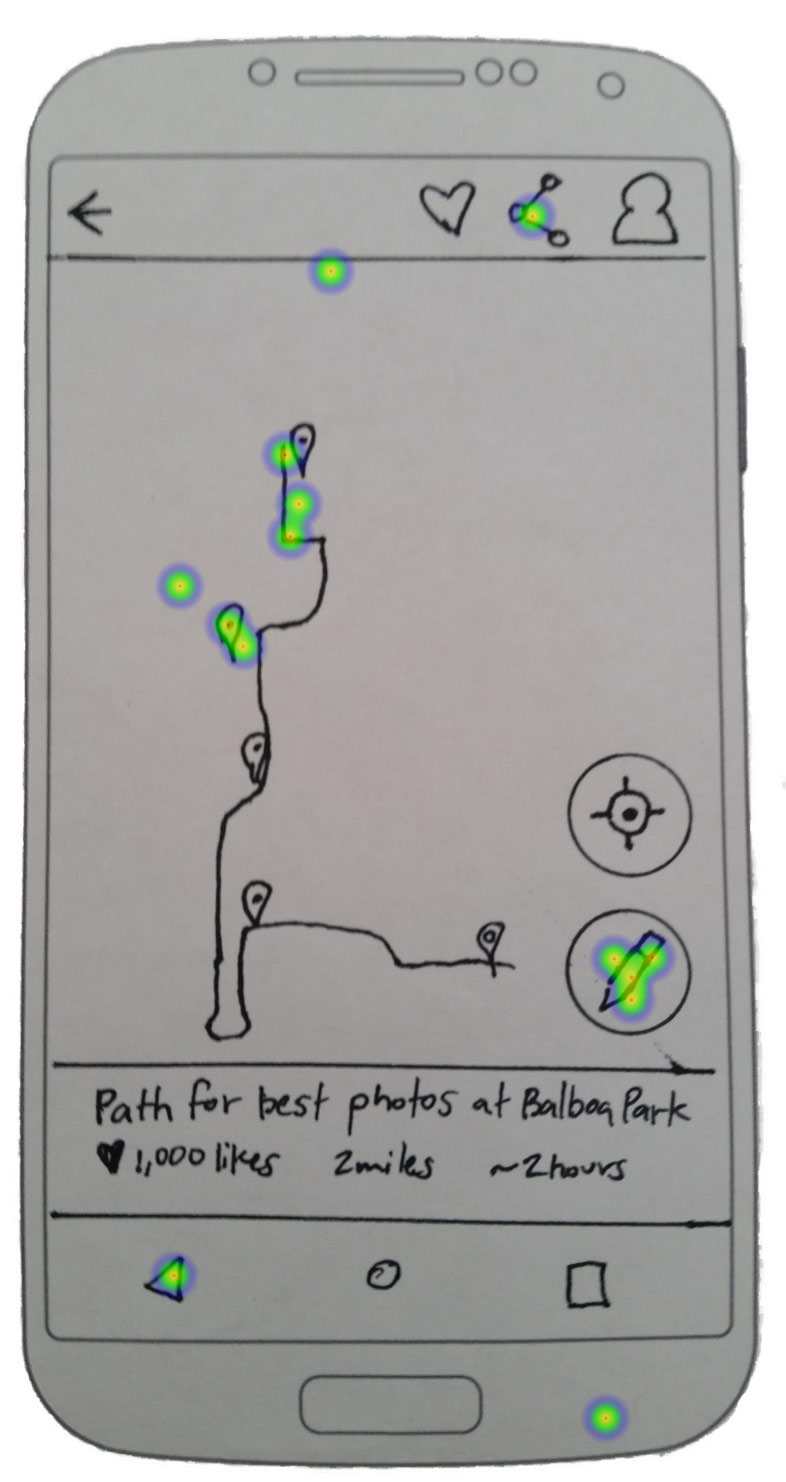 Path for best photos at Balboa Park
♥ 1,000 likes 2miles ~2hours